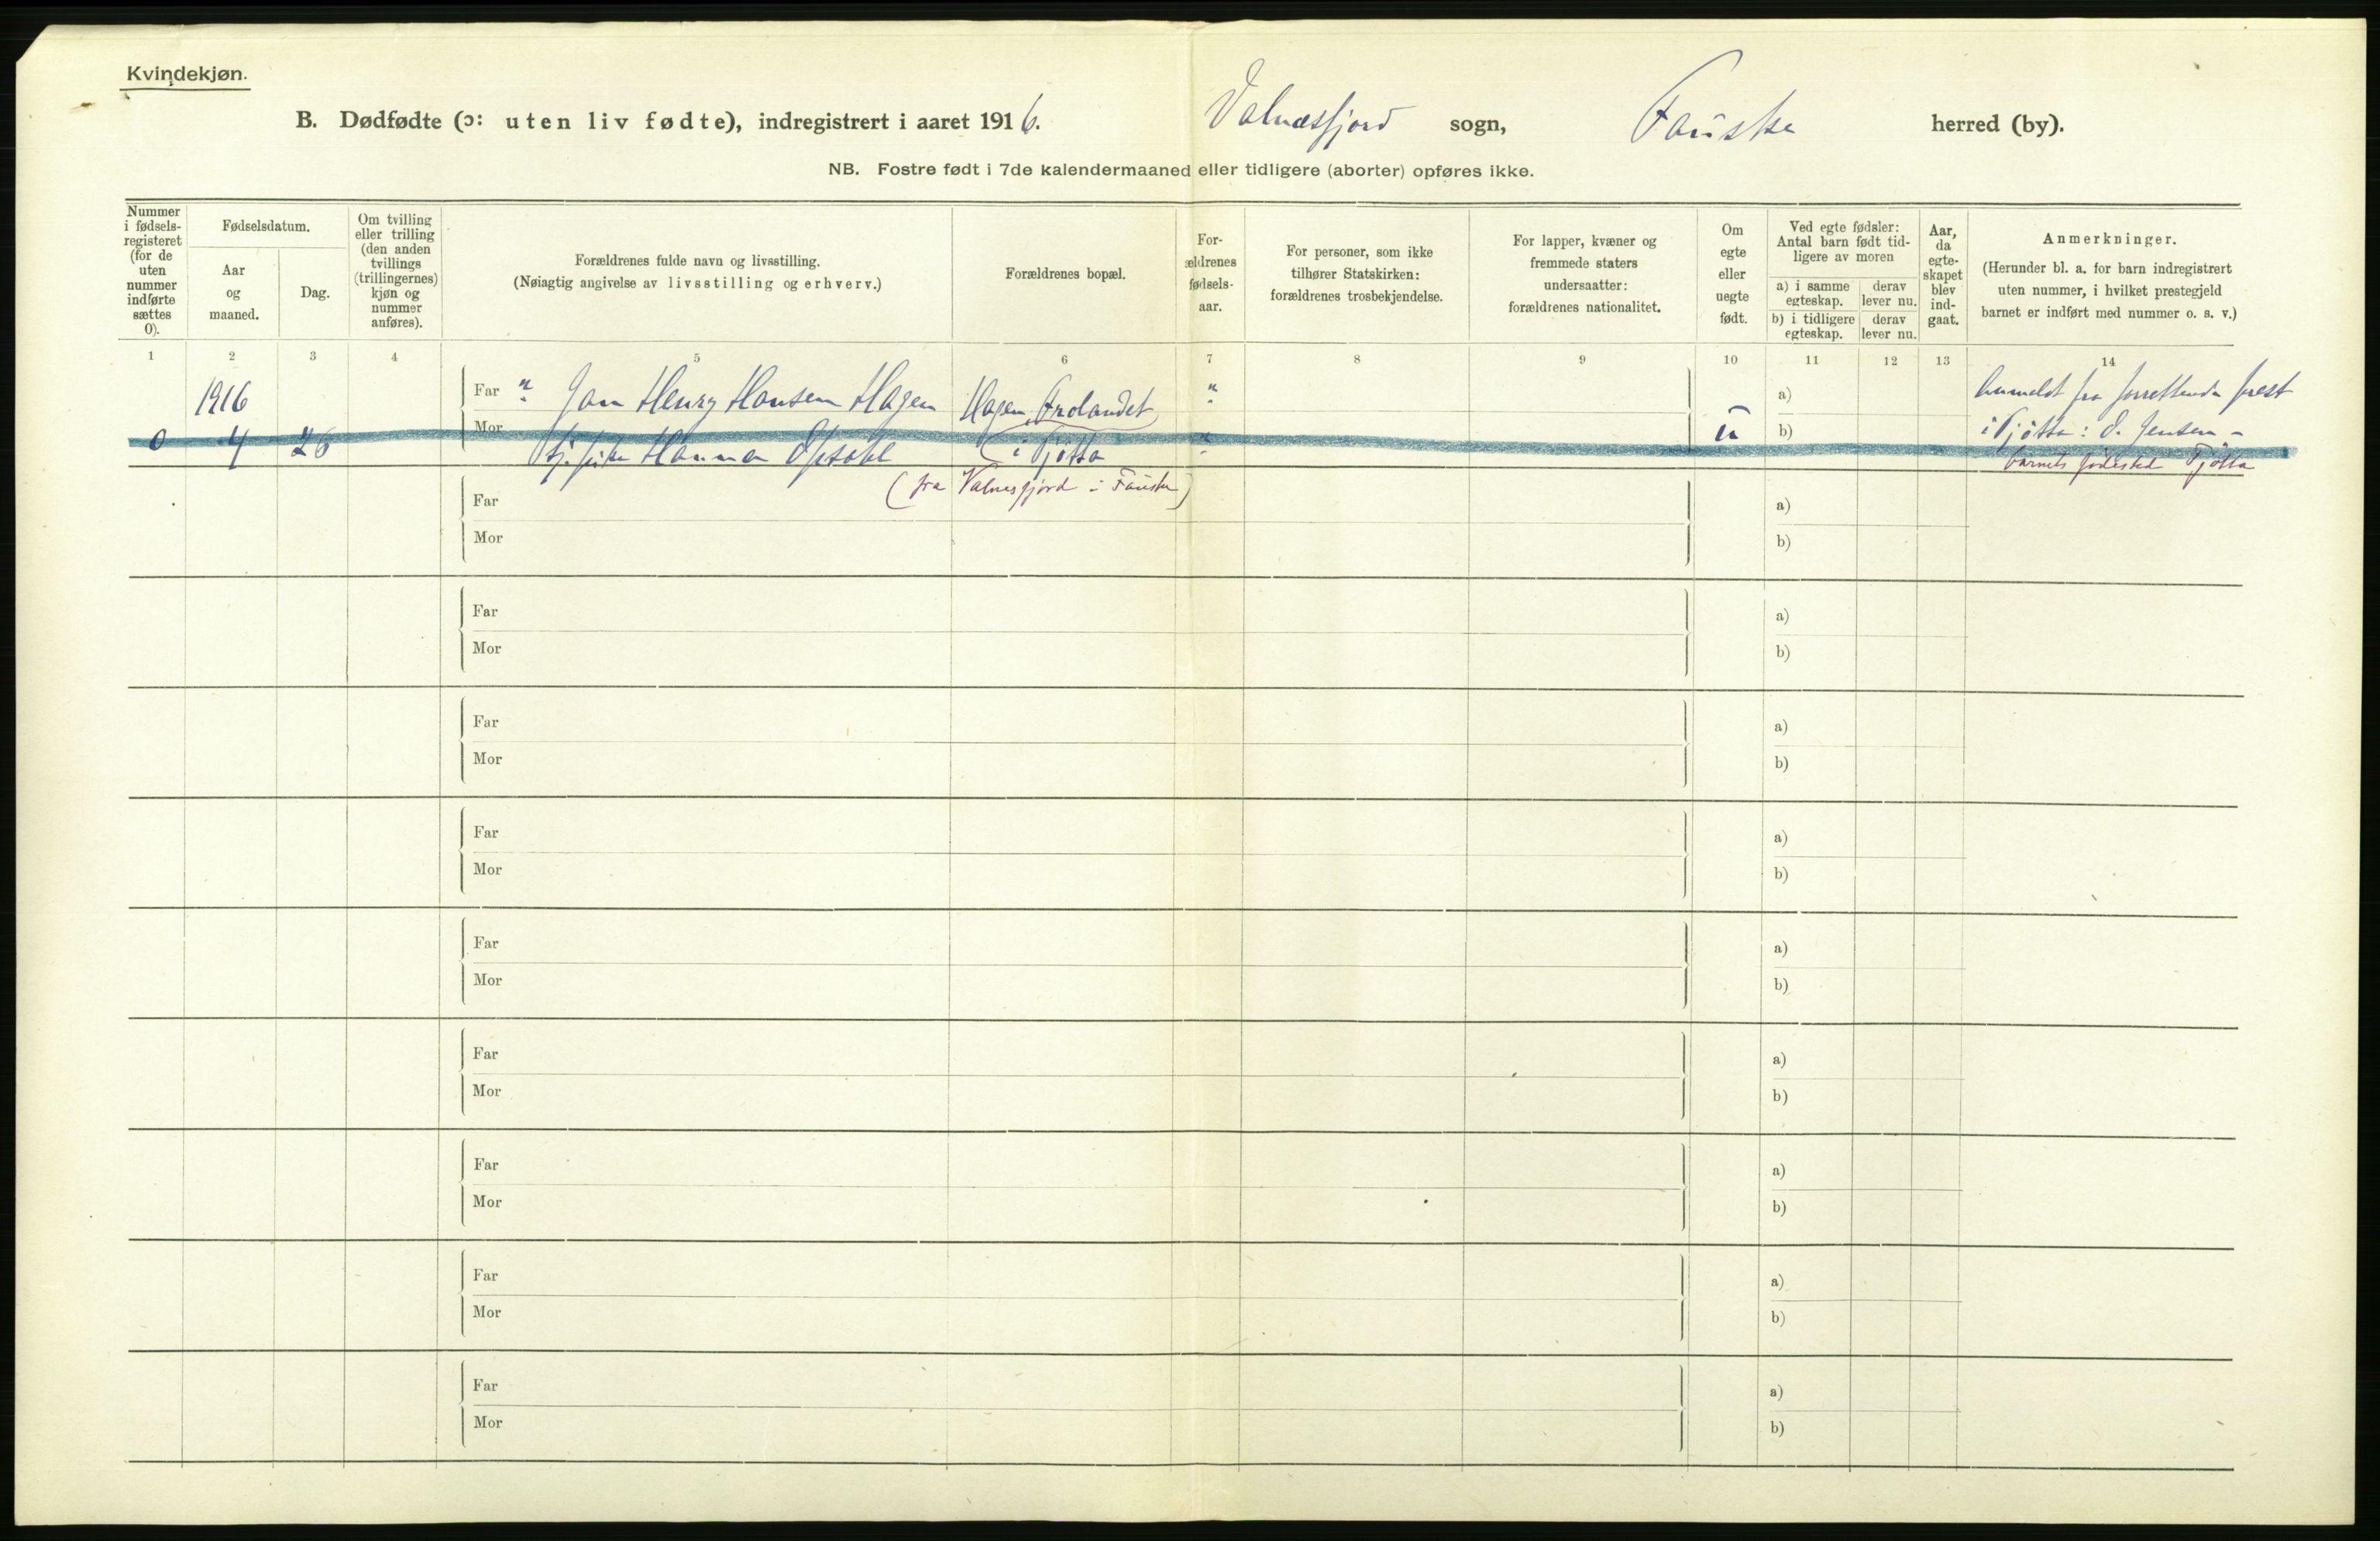 Kvindekjøn.
B. Dødfødte (ɔ: uten liv fødte), indregistrert i aaret 1916. Valnæsfjord sogn, Fauske herred (by).
NB. Fostre født i 7de kalendermaaned eller tidligere (aborter) opføres ikke.
Nummer i fødsels-registeret (for de uten nummer indførte sættes 0).
Fødselsdatum.
Aar og maaned.
Dag.
Om tvilling eller trilling (den anden tvillings (trillingernes) kjøn og nummer anføres).
Forældrenes fulde navn og livsstilling.
(Nøiagtig angivelse av livsstilling og erhverv.)
Forældrenes bopæl.
For-ældrenes fødsels-aar.
For personer, som ikke tilhører Statskirken: forældrenes trosbekjendelse.
For lapper, kvæner og fremmede staters undersaatter: forældrenes nationalitet.
Om egte eller uegte født.
Ved egte fødsler: Antal barn født tid-ligere av moren
a) i samme egteskap.
derav lever nu.
b) i tidligere egteskap.
derav lever nu.
Aar, da egte-skapet blev ind-gaat.
Anmerkninger.
(Herunder bl. a. for barn indregistrert uten nummer, i hvilket prestegjeld barnet er indført med nummer o. s. v.)
1 2 3 4 5 6 7 8 9 10 11 12 13 14
1916 Far " Jam Henry Hansen Hagen Hagen, " a) Anmeldt fra forrettende prest
0 4 26 Mor Hanna Opsahl i Tjøtta " u b) i Tjøtta: O. Jensen -
(fra Valnesfjord i Fauske) barnets fødested Tjøtta
Far a)
Mor b)
Far a)
Mor b)
Far a)
Mor b)
Far a)
Mor b)
Far a)
Mor b)
Far a)
Mor b)
Far a)
Mor b)
Far a)
Mor b)
Far a)
Mor b)